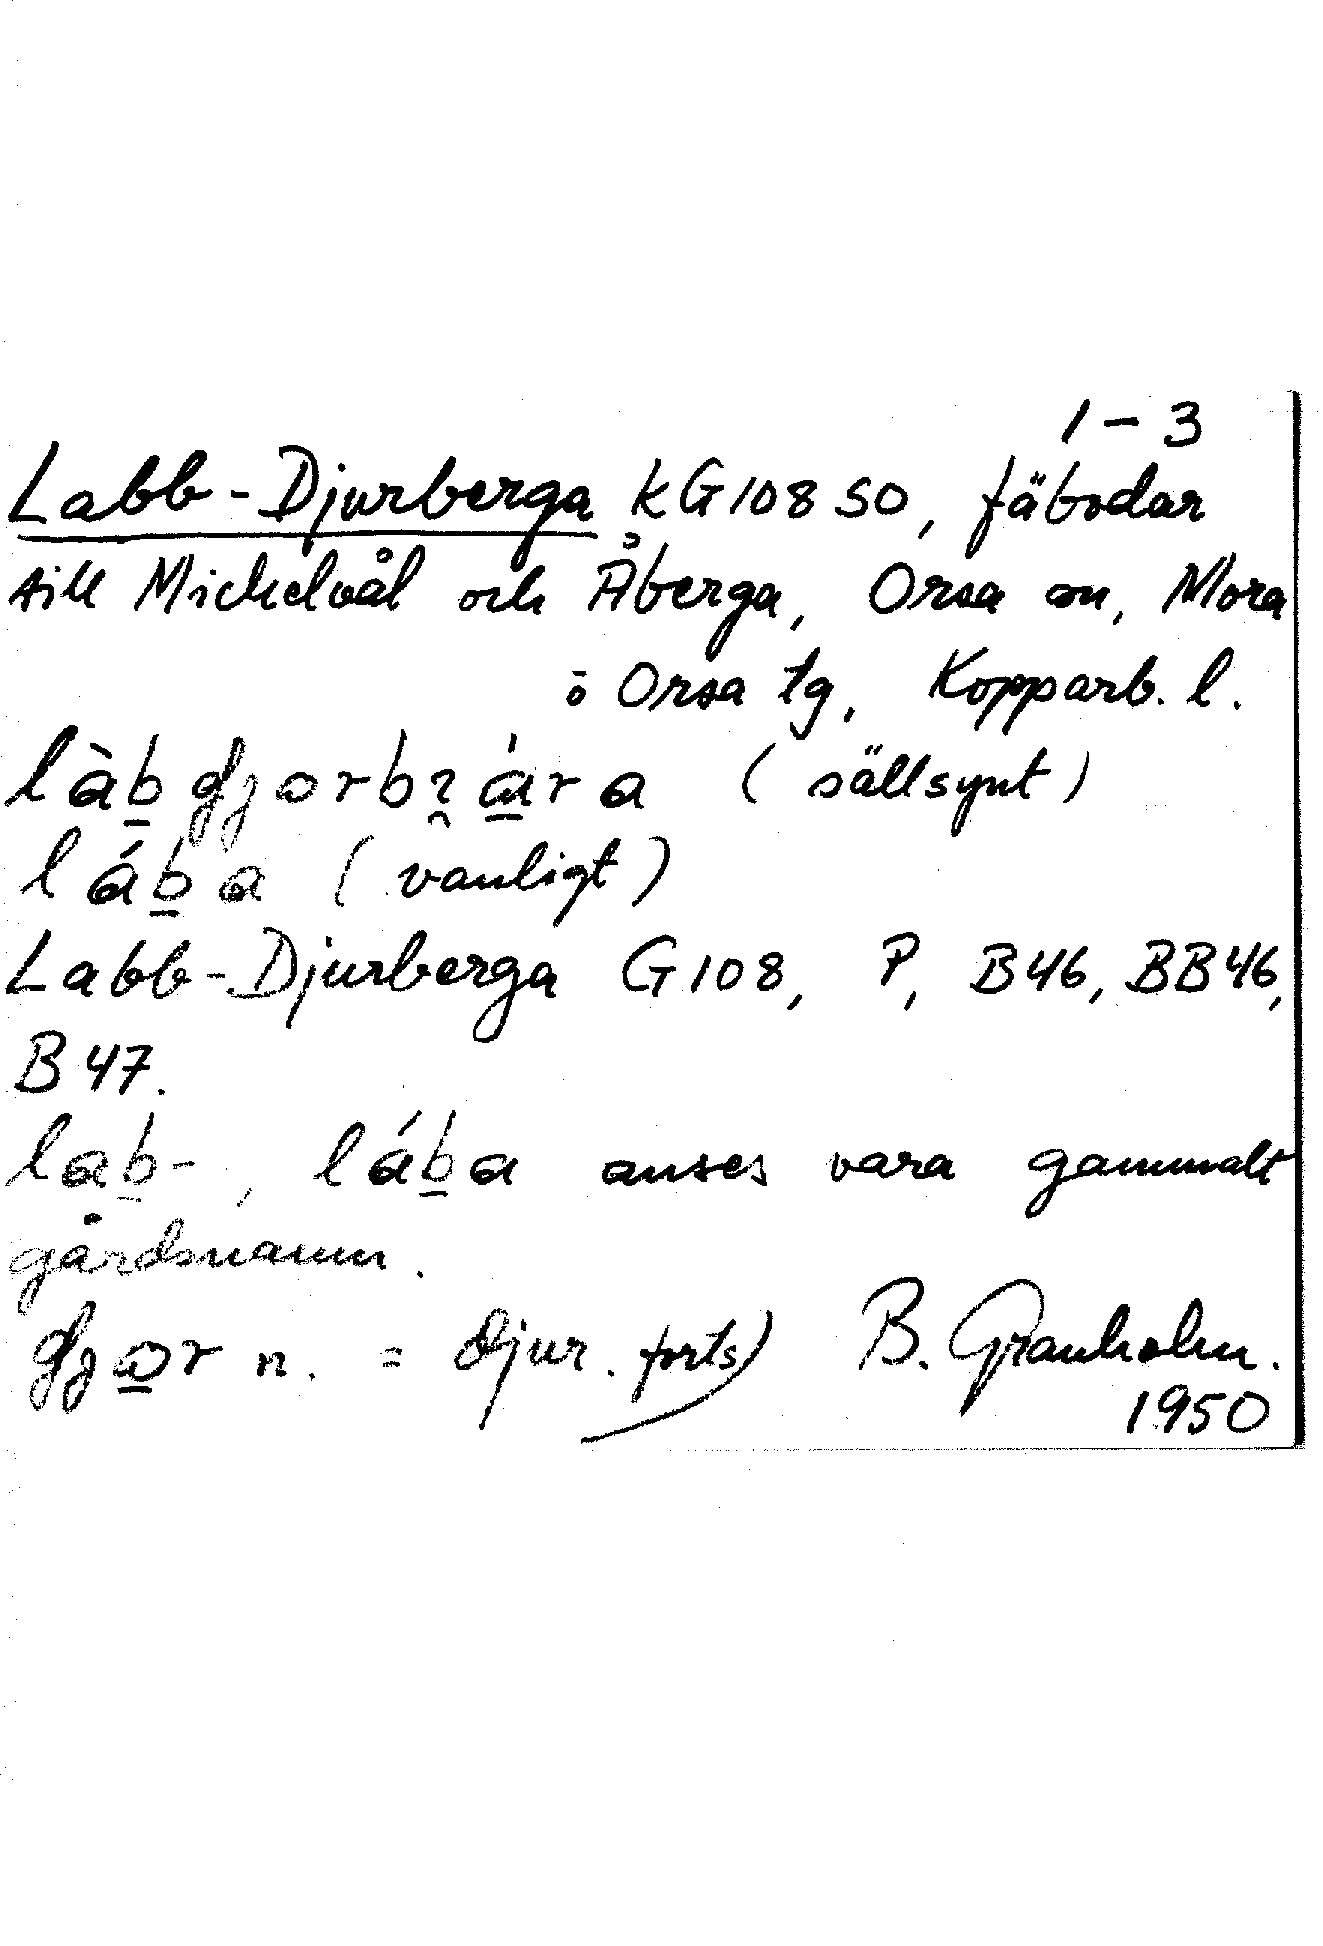 1-3
Labb-Djurberga kG108 SO, fäbodar
till Mickelvål och Åberga, Orsa sn, Mora
o Orsa tg, Kopparb. l.
(sällsynt)
lába (vanligt)
Labb-Djurberga G108, P, B46, BB46,
B47.
lab-, lába anses vara gammalt
gårdsnamn.
n. = djur. forts) B. Granholm.
1950